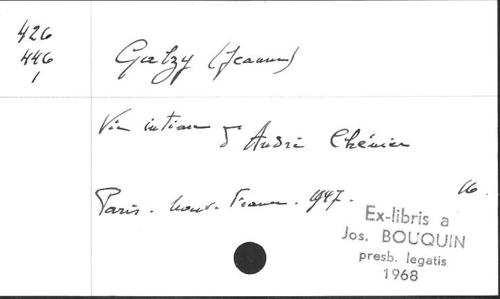 426
446
1
Galzy (Jeanne)
Vie intime d'André Chénier
Paris. Nouv. France. 1947. 16.
Ex-libris a
Jos. BOUQUIN
presb. legatis
1968